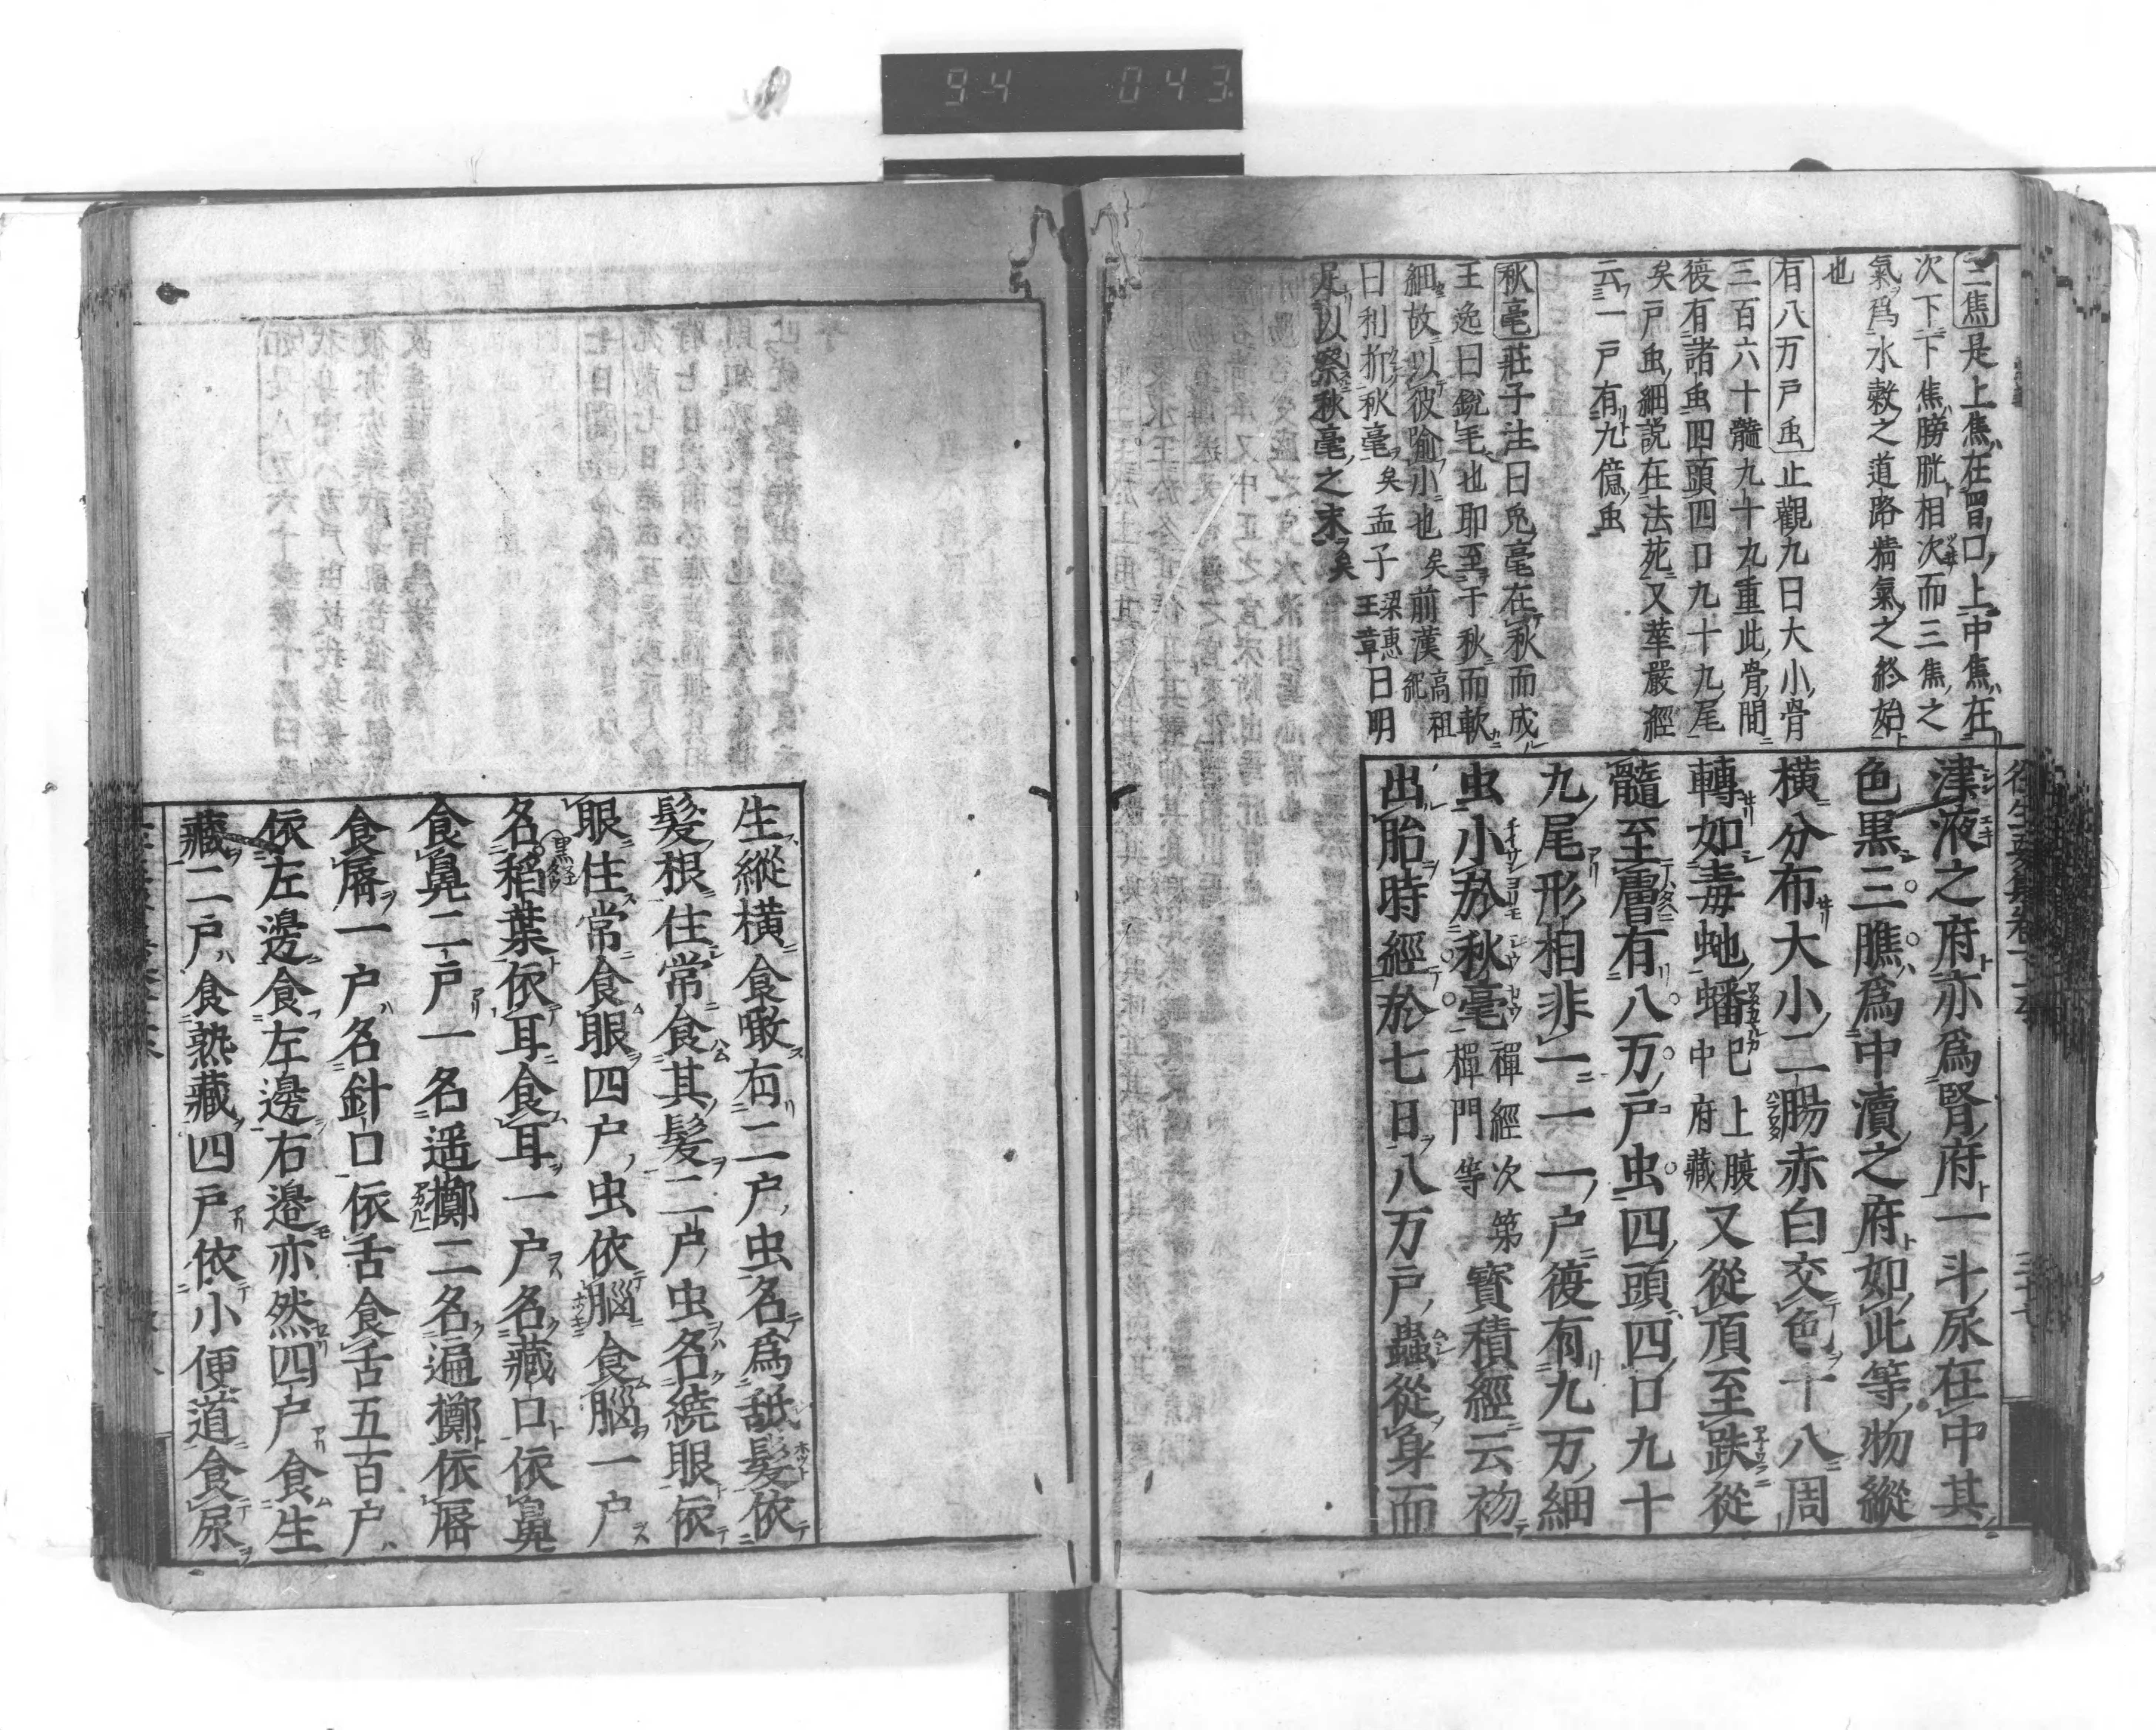 94 043
三焦是上焦在胃口上中焦在
次下下焦膀胱相次而三焦之
氣爲水穀之道路精氣之終始
也
有八万戸虫止觀九日大小骨
三百六十髓九十九重此骨間
復有諸虫四頭四口九十九尾
矣戸虫細説在法苑又華嚴經
云一戸有九億虫
秋毫莊子注曰兎毫在秋而成
王逸曰銳毛也耶至于秋而軟
細故以彼喩小也矣前漢高祖紀
曰利折秋毫矣孟子梁惠王章曰明
足以察秋毫之末矣
津液之府亦爲腎府一斗尿在中其
色黒三膲爲中瀆之府如此等物縱
橫分布大小二腸赤白交色十八周
轉如毒虵蟠巳上腠中府藏又從頂至趺從
髓至膚有八万戸虫四頭四口九十
九尾形相非一一一戸復有九万細
虫小於秋毫禪經次第禪門等寳積經云初
出胎時經於七日八万戸蟲從身而
生縱橫食噉有二戸虫名爲舐髮依
髮根住常食其髮二戸虫名繞眼依
眼住常食眼四戸虫依腦食腦一戸
名稻葉依耳食耳一戸名藏口依鼻
食鼻二戸一名遥擲二名遍擲依脣
食脣一戸名針口依舌食舌五百戸
依左邊食左邊右邊亦然四戸食生
藏二戸食熟藏四戸依小便道食尿